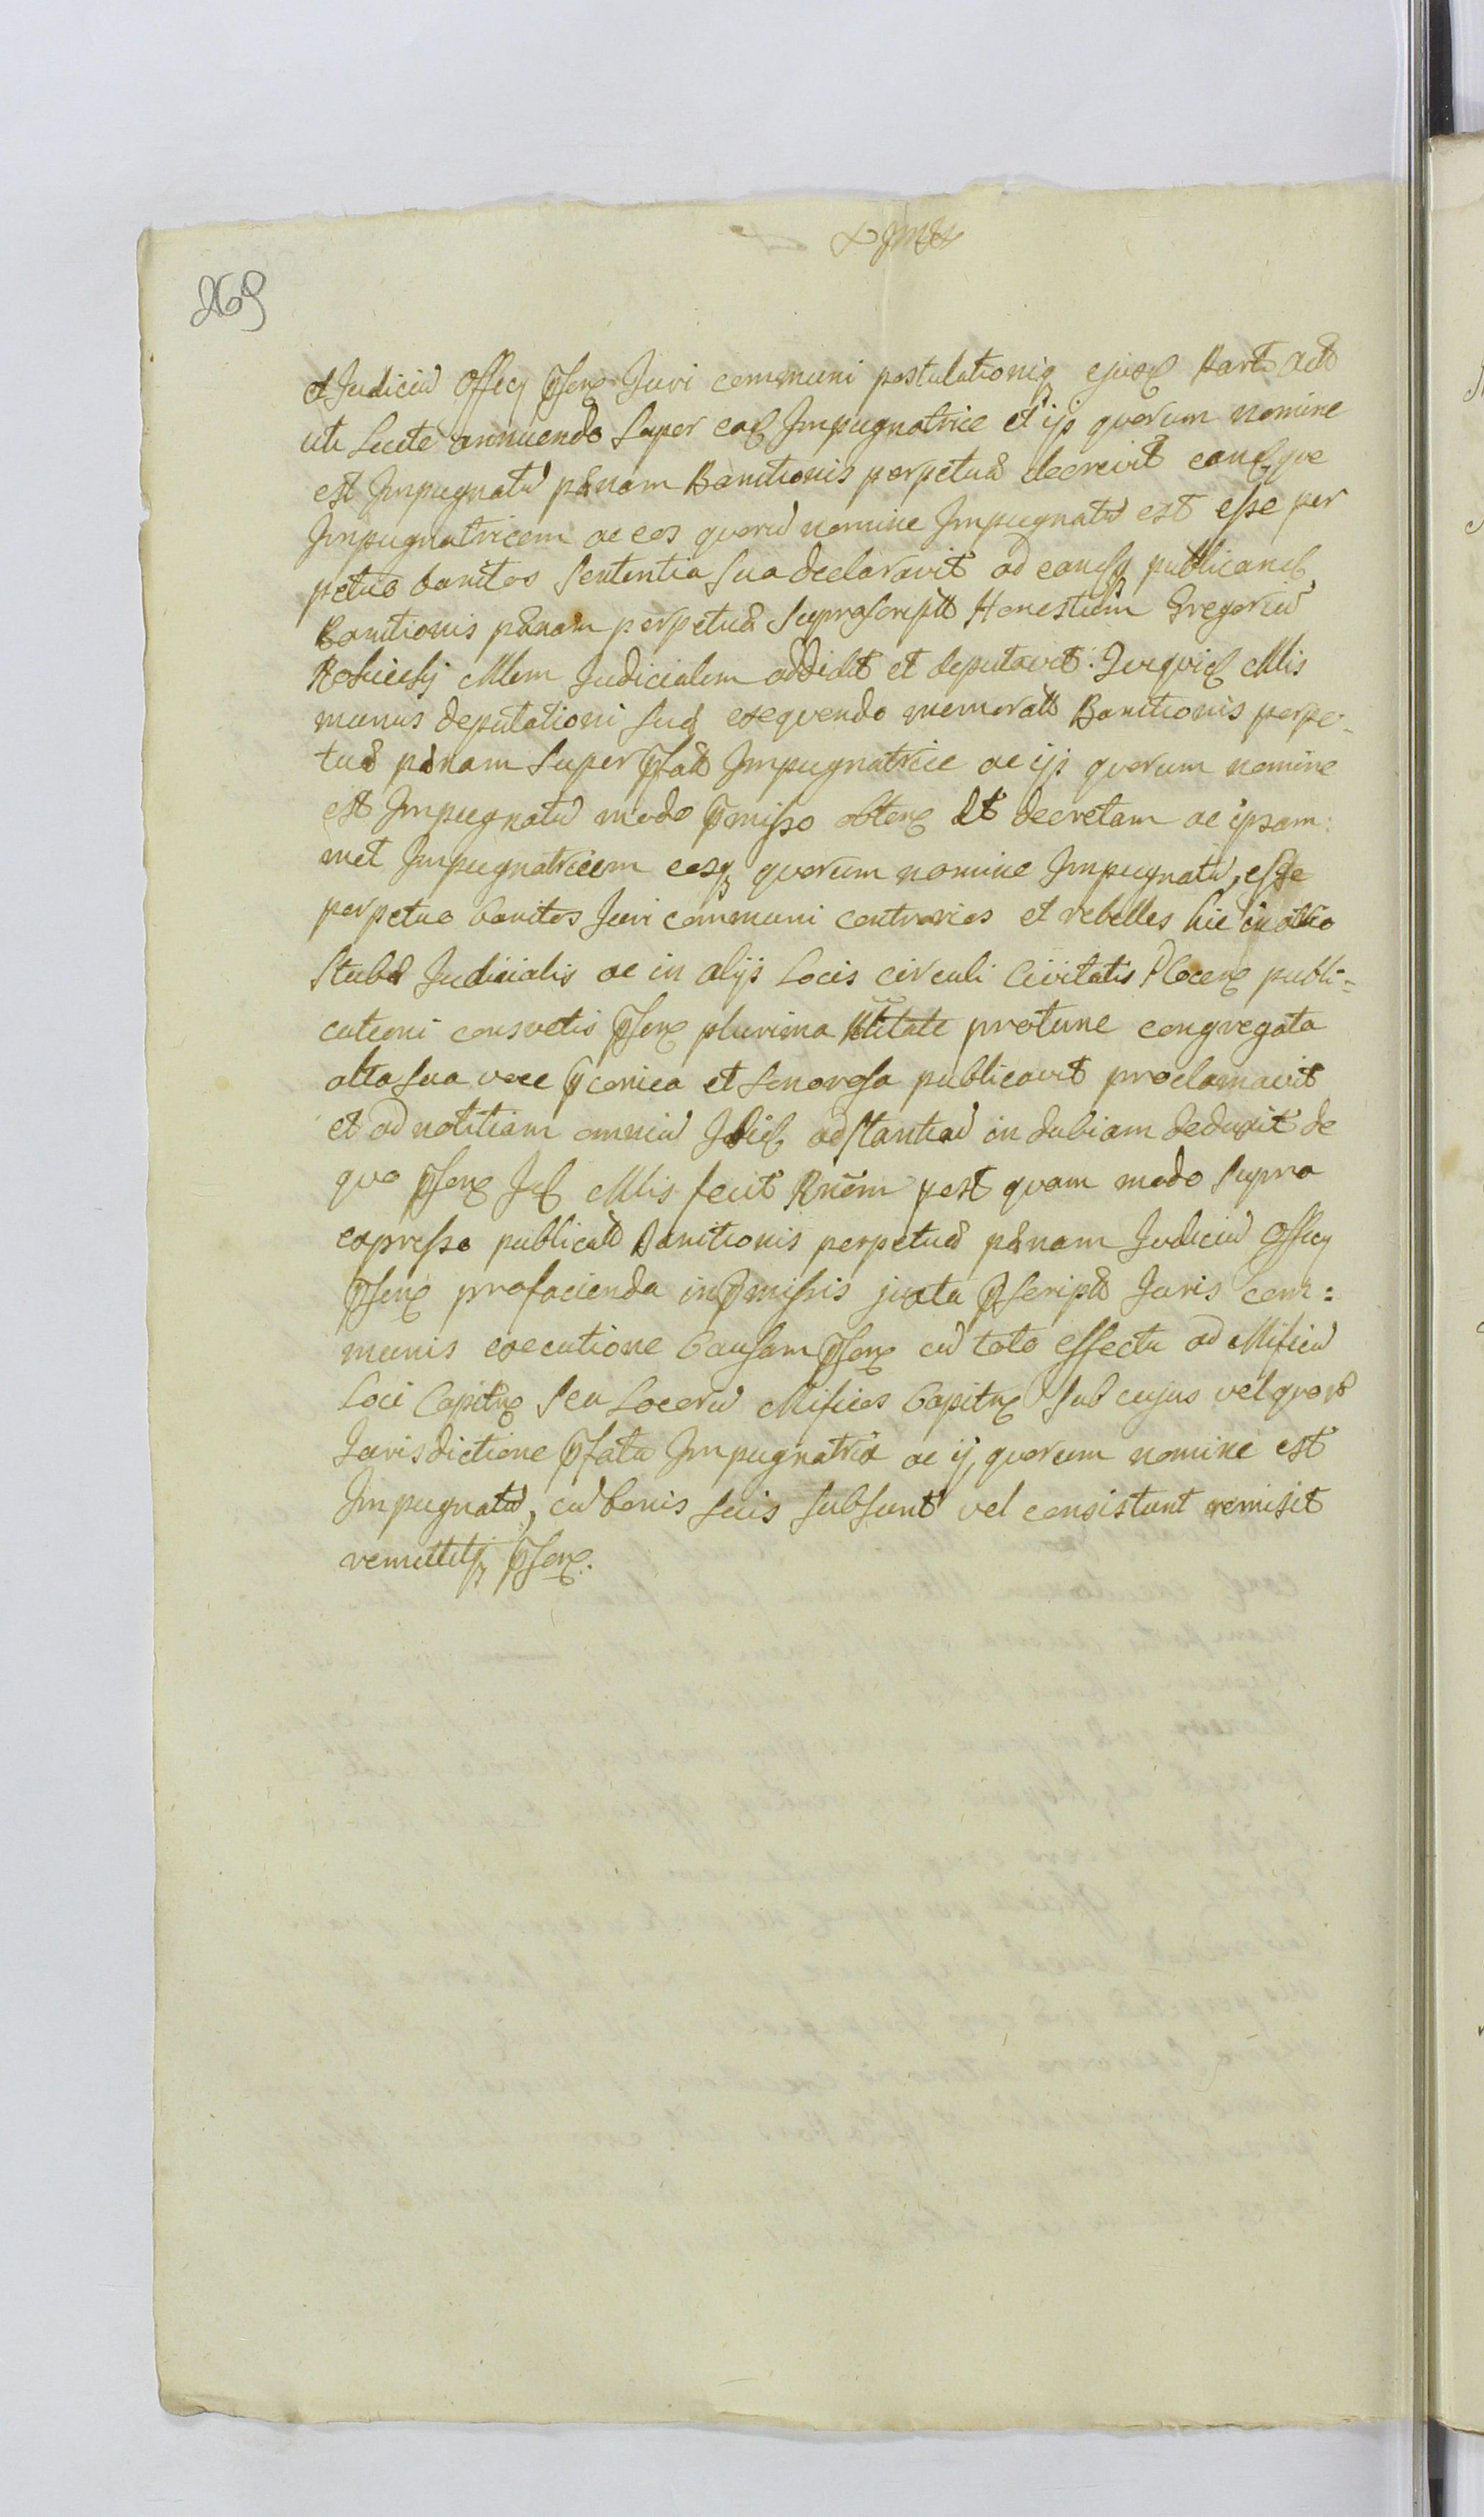 269
et Judiciū Officÿ pñsenꝫ Juri communi postulationiqꝫ ejusd Part Act
uti Licite annuendo Super ead Impugnatrice et ijs quorum nomine
est Impugnatū pænam Banitionis perpetuæ decrevit eandque
Impugnatricem ac eos quorū nomine Impugnatū est esse per
petuo banitos Sententia Sua declaravit ad eandqꝫ publicand
Banitionis pænam perpetuæ Suprascriptt Honestum Gregoriū
Mlem Judicialem addidit et deputavit. Qui quid Mlis
munus deputationi Suæ exequendo memoratt Banitionis perpe-
tuæ pænam Super pfatt Impugnatrice ac ijs quorum nomine
est Impugnatū modo pmisso obtenꝫ et decretam ac ipsam:
met Impugnatricem eosqꝫ quorum nomine Impugnatū, esse
perpetuo banitos Juri communi contrarios et rebelles hic in atrio
Stubæ Judicialis ac in alijs Locis circuli Civitatis Plocenꝫ publi-
cationi consvetis pñsenꝫ plurima Nttitate protunc congregata
alta Sua voce pconica et Sonorosa publicavit proclamavit
et ad notitiam omniū Ibid adstantiū indubiam deduxit de
quo pñsenꝫ Id Mlis fecit Rñem post quam modo Supra
expresso publicatt Banitionis perpetuæ pænam Judiciū Officÿ
pñsenꝫ pro facienda in pmissis juxta pscript Juris com:
munis executione Causam pñsenꝫ cū toto effectu ad Mificū
Loci Capitnꝫ Seu Locorū Mificos Capitnꝫ Sub cujus vel quor
Jurisdictione pfata Impugnatrix ac ij, quorum nomine est
Impugnatū, cū bonis Suis Subsunt vel consistunt remisit
remittitqꝫ pñsenꝫ.